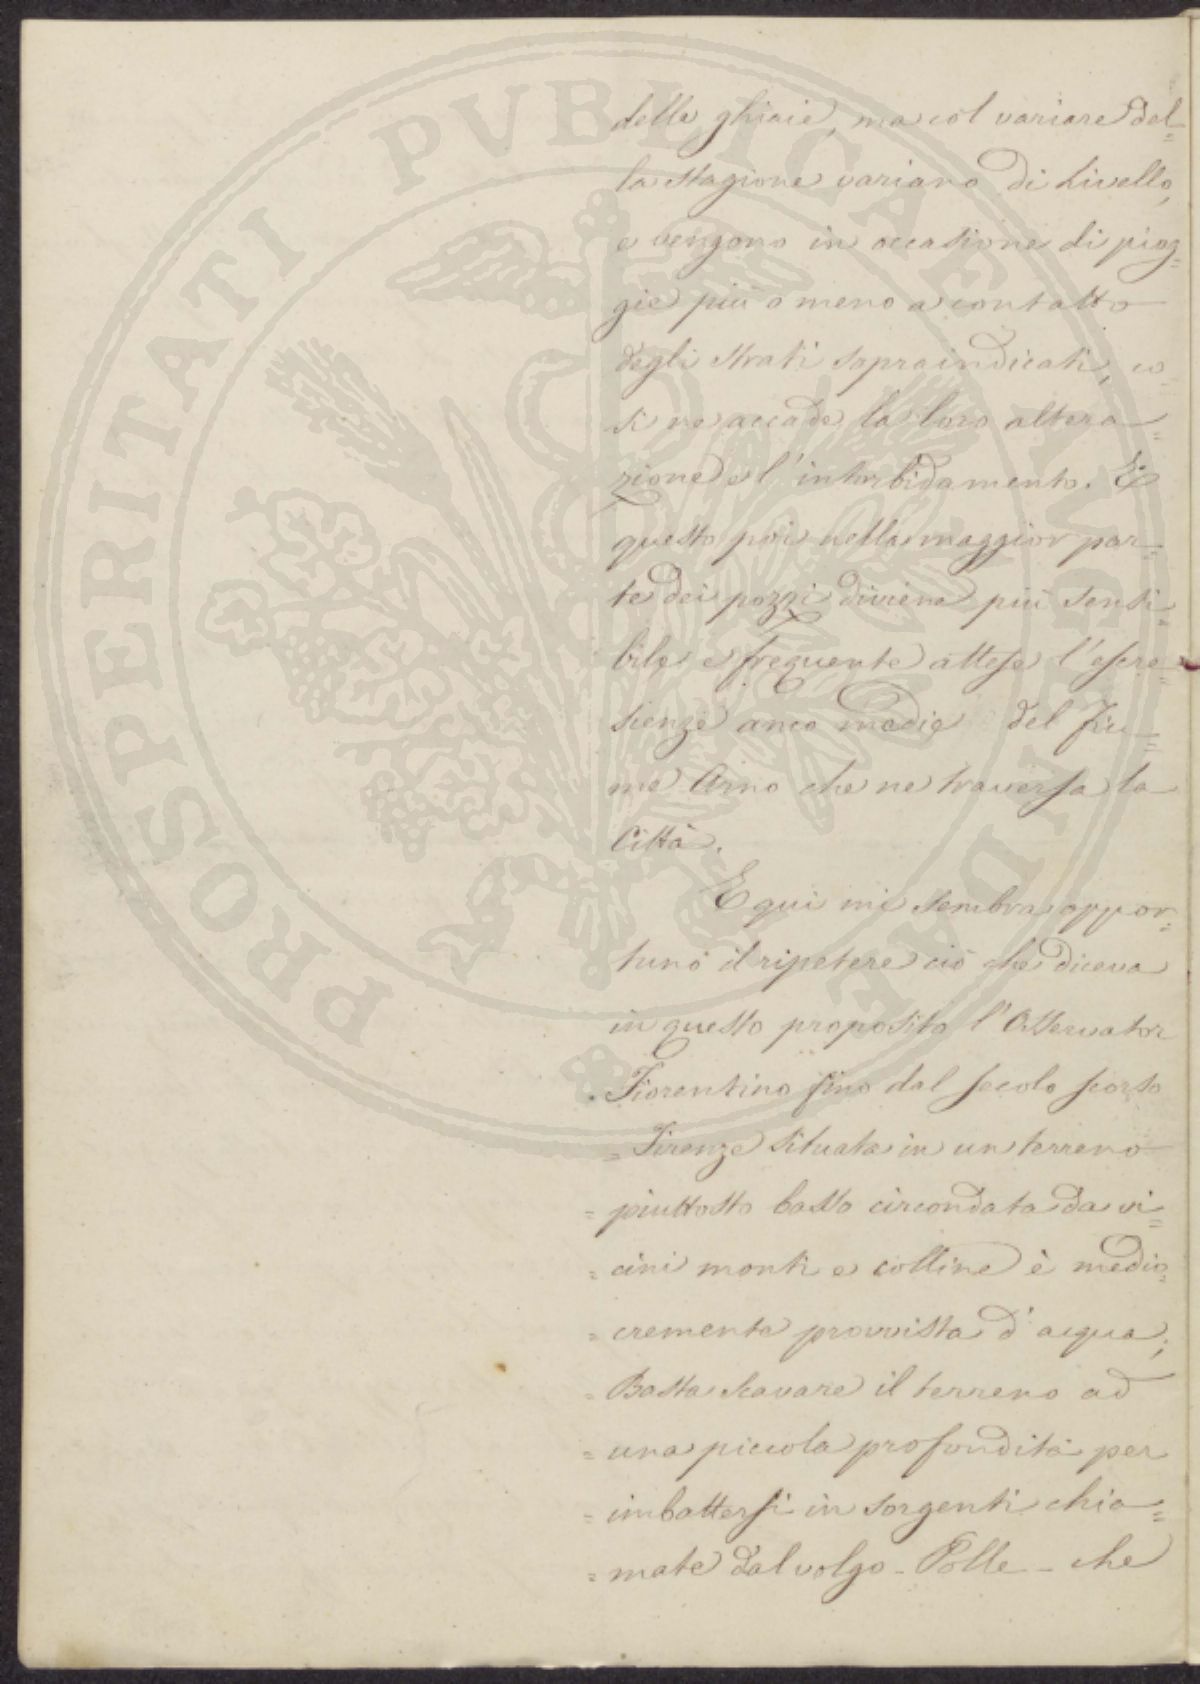 PROSPERITATI PVBLICAE AVGENDAE
delle ghiaie, ma col variare del=
la stagione variano di Livello,
e vengono in occasione di piog=
gie più o meno a contatto
degli strati sopraindicati, co=
sì ne accade la loro altera=
zione e l'intorbidamento. E
questo poi nella maggior par=
te dei pozzi diviene più sensi=
bile e frequente attese l'escre=
sienze anco medie del Fiu=
me Arno che ne traversa la
Città.
E qui mi sembra oppor=
tuno il ripetere ciò che diceva
in questo proposito l'Osservator
Fiorentino fino dal secolo scorso
= Firenze situata in un terreno
= piuttosto basso circondata da vi=
= cini monti e colline è medio=
= cremente provvista d'acqua;
= Basta scavare il terreno ad
= una piccola profondità per
= imbattersi in sorgenti chia=
= mate dal volgo - Polle - che